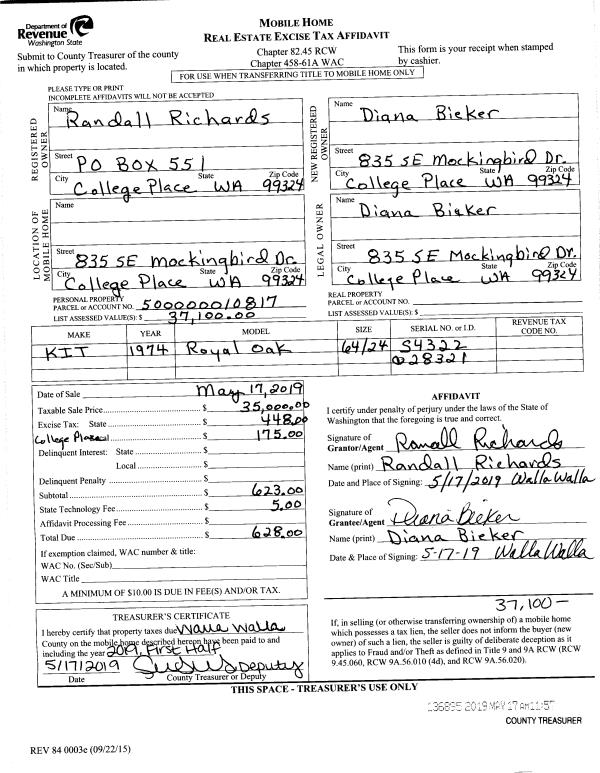 Department of
Revenue
Washington State
MOBILE HOME
REAL ESTATE EXCISE TAX AFFIDAVIT
Submit to County Treasurer of the county
in which property is located.
Chapter 82.45 RCW
Chapter 458-61A WAC
This form is your receipt when stamped
by cashier.
FOR USE WHEN TRANSFERRING TITLE TO MOBILE HOME ONLY
PLEASE TYPE OR PRINT
INCOMPLETE AFFIDAVITS WILL NOT BE ACCEPTED
REGISTERED OWNER
Name Randall Richards
Street PO Box 551
City State Zip Code
College Place WA 99324
NEW REGISTERED OWNER
Name Diana Bieker
Street 835 SE Mockingbird Dr.
City State Zip Code
College Place WA 99324
LOCATION OF MOBILE HOME
Name
Street 835 SE Mockingbird Dr.
City State Zip Code
College Place WA 99324
LEGAL OWNER
Name Diana Bieker
Street 835 SE Mockingbird Dr.
City State Zip Code
College Place WA 99324
PERSONAL PROPERTY
PARCEL or ACCOUNT NO. 500000010817
LIST ASSESSED VALUE(S): $ 37,100.00
REAL PROPERTY
PARCEL or ACCOUNT NO.
LIST ASSESSED VALUE(S): $
MAKE YEAR MODEL SIZE SERIAL NO. or I.D. REVENUE TAX CODE NO.
KIT 1974 Royal Oak 64/24 S4322
028321
Date of Sale May 17, 2019
Taxable Sale Price $ 35,000.00
Excise Tax: State $ 448.00
College Place Local $ 175.00
Delinquent Interest: State $
Local $
Delinquent Penalty $
Subtotal $ 623.00
State Technology Fee $ 5.00
Affidavit Processing Fee $
Total Due $ 628.00
If exemption claimed, WAC number & title:
WAC No. (Sec/Sub)
WAC Title
A MINIMUM OF $10.00 IS DUE IN FEE(S) AND/OR TAX.
AFFIDAVIT
I certify under penalty of perjury under the laws of the State of
Washington that the foregoing is true and correct.
Signature of
Grantor/Agent Randall Richards
Name (print) Randall Richards
Date and Place of Signing: 5/17/2019 Walla Walla
Signature of
Grantee/Agent Diana Bieker
Name (print) Diana Bieker
Date & Place of Signing: 5-17-19 Walla Walla
TREASURER'S CERTIFICATE
I hereby certify that property taxes due Walla Walla
County on the mobile home described hereon have been paid to and
including the year 2019, First Half
5/17/2019 Deputy
Date County Treasurer or Deputy
37,100-
If, in selling (or otherwise transferring ownership of) a mobile home
which possesses a tax lien, the seller does not inform the buyer (new
owner) of such a lien, the seller is guilty of deliberate deception as it
applies to Fraud and/or Theft as defined in Title 9 and 9A RCW (RCW
9.45.060, RCW 9A.56.010 (4d), and RCW 9A.56.020).
THIS SPACE - TREASURER'S USE ONLY
136895 2019 MAY 17 AM 11:57
COUNTY TREASURER
REV 84 0003e (09/22/15)